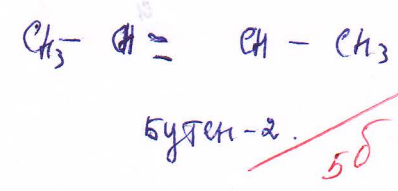 CH₃ – CH = CH – CH₃
Бутен-2.
5б